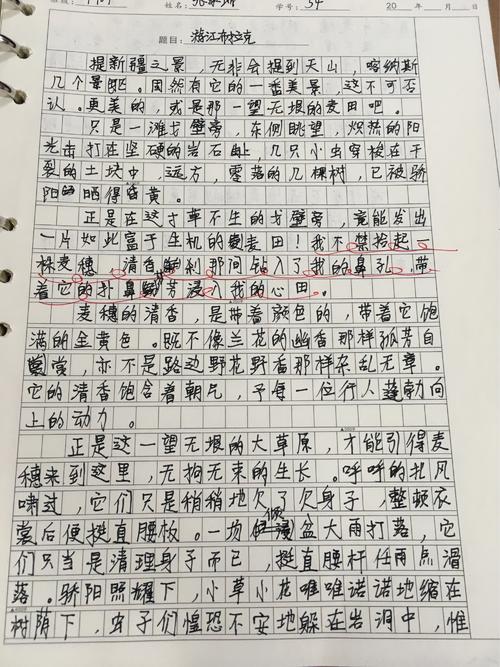 姓名: 学号: 54 20 年 月 日
题目: 游江布拉克
提新疆之景,无非会提到天山,喀纳斯
几个景地。固然有它的一番美景,这不可否
认。更美的,或是那一望无垠的麦田吧。
只是一滩戈壁旁,东侧眺望,炽热的阳
光击打在坚硬的岩石上,几只小虫穿梭在干
裂的土块中,远方,零落的几棵树,已被骄
阳的晒得昏黄。
正是在这寸草不生的戈壁旁,竟能发出
一片如此富于生机的麦田!我不禁拾起一
株麦穗,清香刹那间钻入了我的鼻孔,带
着它的扑鼻芬芳浸入我的心田。
麦穗的清香,是带着颜色的,带着它饱
满的金黄色。既不像兰花的幽香那样孤芳自
赏,亦不是路边野花野香那样杂乱无章。
它的清香饱含着朝气,予每一位行人蓬勃向
上的动力。
正是这一望无垠的大草原,才能引得麦
穗来到这里,无拘无束的生长。呼呼的北风
啸过,它们只是稍稍地欠了欠身子,整顿衣
裳后便挺直腰板。一场倾盆大雨打落,它
们只当是清理身子而已,挺直腰杆任雨点滑
落。骄阳照耀下,小草小花唯唯诺诺地缩在
树荫下,虫子们惶恐不安地躲在岩洞中,惟